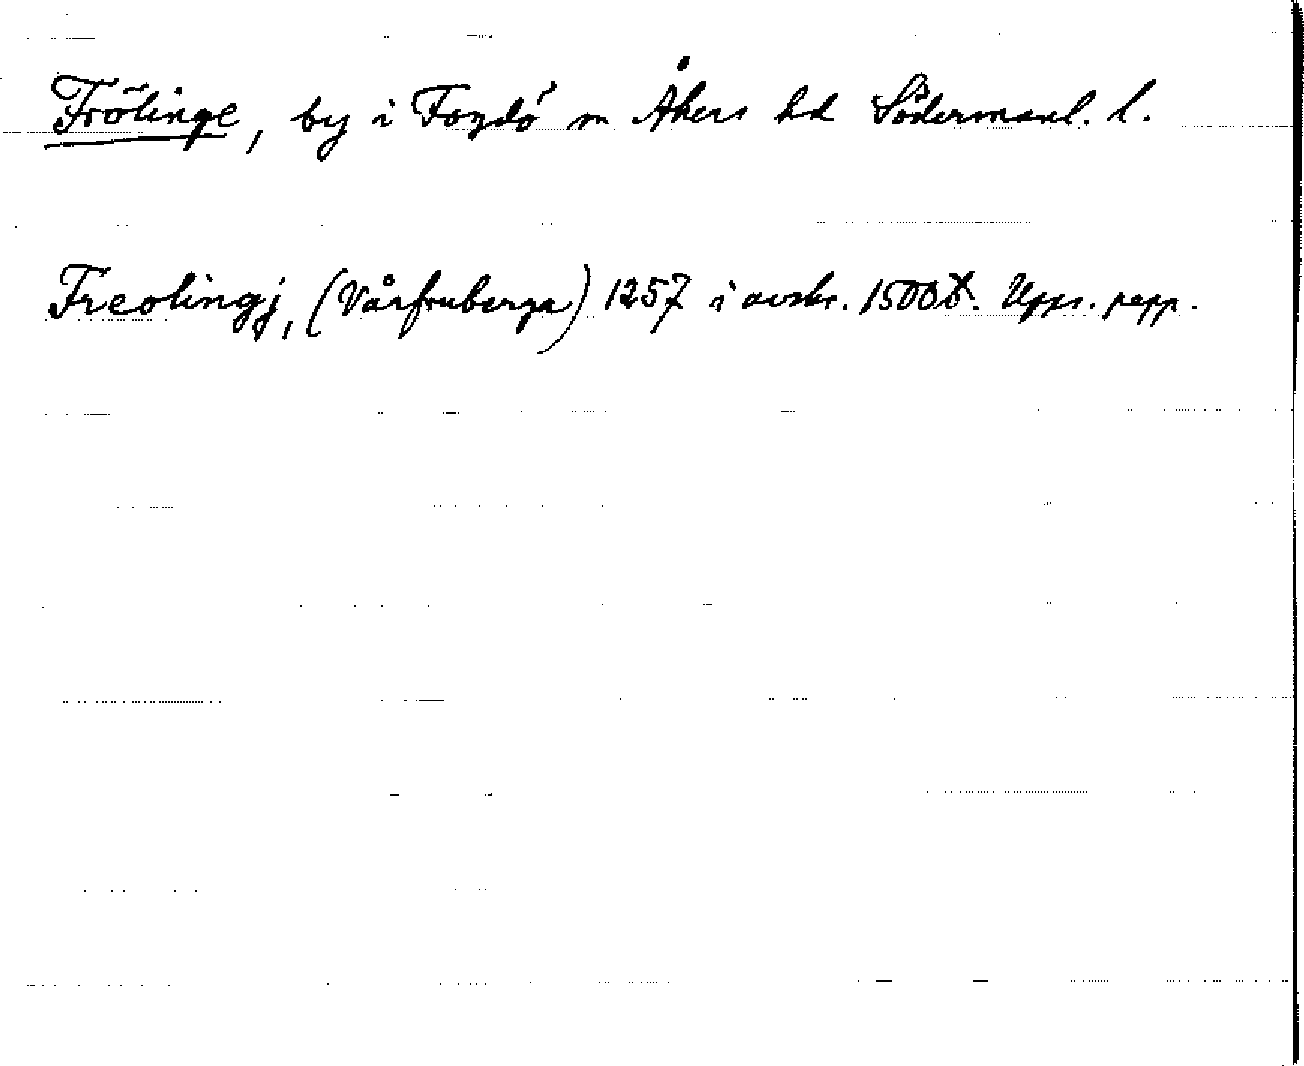 Frölinge, by i Fogdö sn Åkers hd Södermanl. l.
Freolingj, (Vårfruberga) 1257 i avskr. 1500t. Upps. papp.